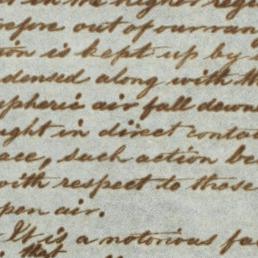 in the higher regi
refore out of our ran
tion is kept up by s
densed along with th
spheric air fall down
ught in direct contac
ace, such action be
with respect to those
upon air.
It is a notorious fa
that